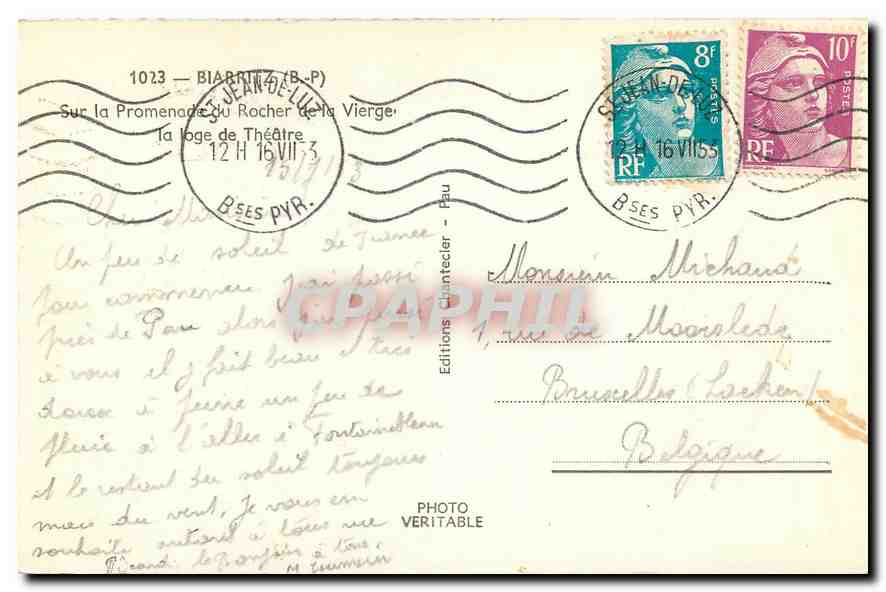 1023 — BIARRITZ (B.-P)
Sur la Promenade du Rocher de la Vierge
la loge de Théâtre
ST JEAN-DE-LUZ
12 H 16 VII 53
BSES PYR.
15/7/53
Cher
Un peu de soleil de France
pour commencer j'ai passé
près de Pau alors que
à vous il y fait beau et très
doux à peine un peu de
pluie à l'aller à Fontainebleau
et le restant du soleil toujours
mais du vent, je vous en
souhaite autant à tous
le bonjour à tous
Editions Chantecler - Pau
PHOTO
VERITABLE
8F
POSTES
RF
10F
POSTES
RF
ST JEAN-DE-LUZ
12 H 16 VII 53
BSES PYR.
Monsieur Michaud
1, rue de Moorslede
Bruxelles (Laeken)
Belgique
CPAPHIL